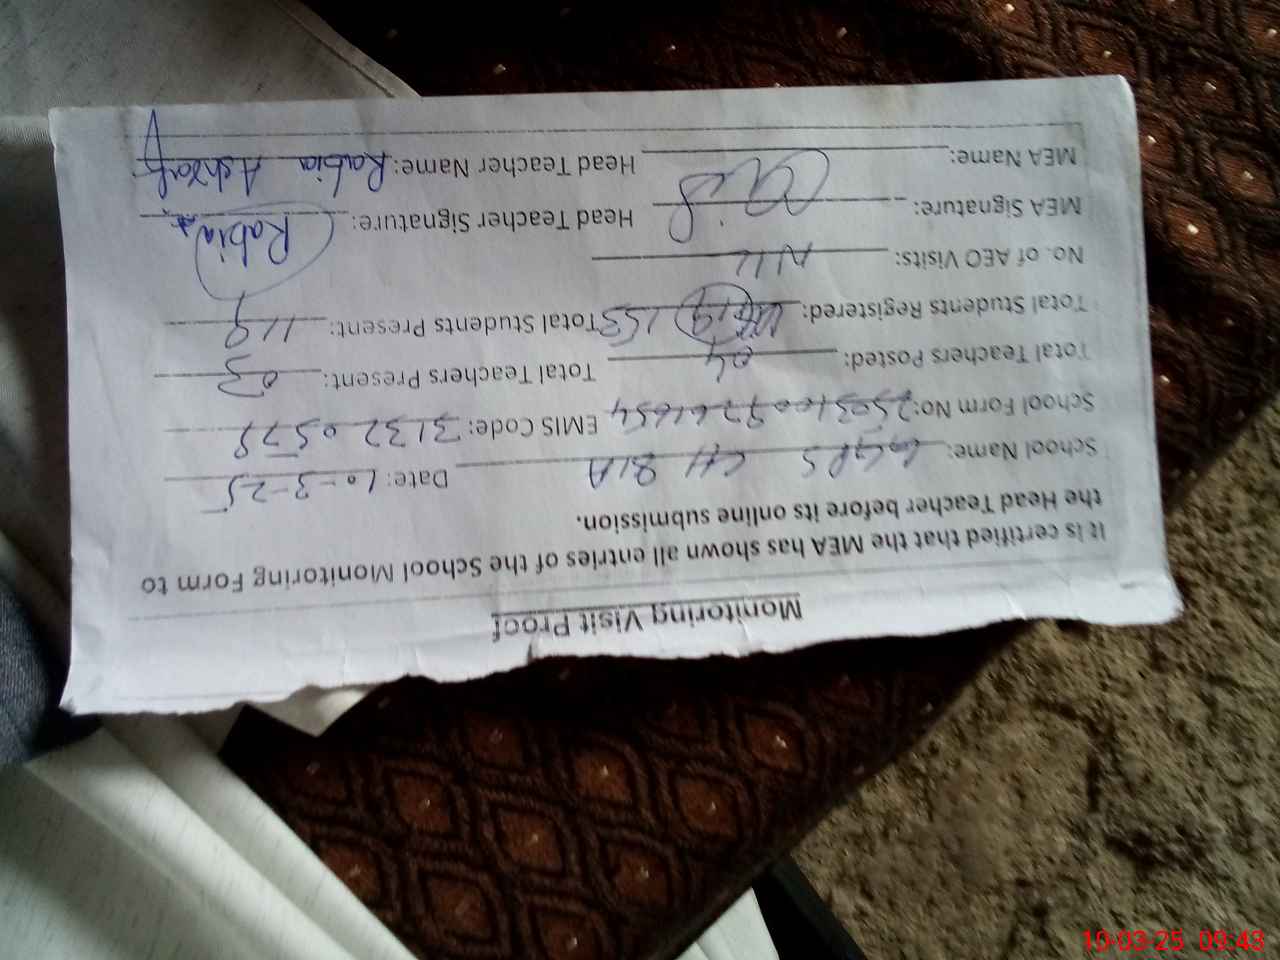 Monitoring Visit Proof
It is certified that the MEA has shown all entries of the School Monitoring Form to
the Head Teacher before its online submission.
School Name: GGPS CH BIA Date: 10-3-25
School Form No: 25031009761654 EMIS Code: 31320578
Total Teachers Posted: 04 Total Teachers Present: 03
Total Students Registered: 153 Total Students Present: 119
No. of AEO Visits: NIL
MEA Signature: Head Teacher Signature: Rabia
MEA Name: Head Teacher Name: Rabia Ashraf
10-03-25 09:43